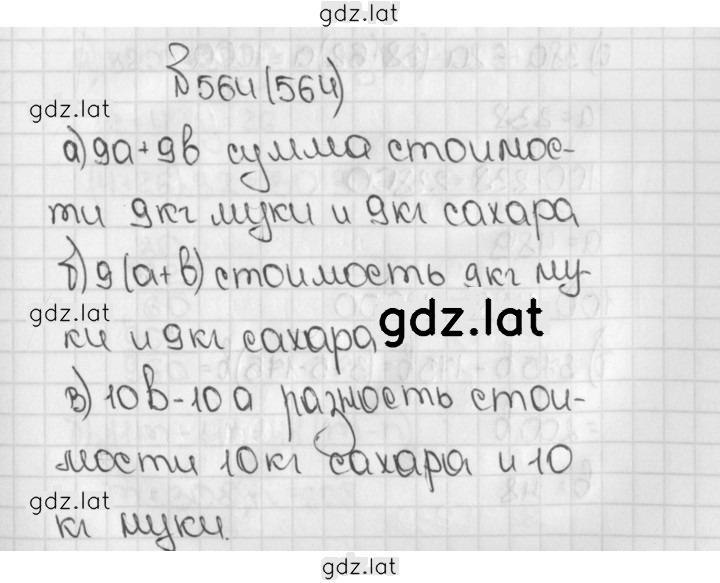 gdz.lat
№564(564)
gdz.lat
а) 9а+9в сумма стоимос-
ти 9кг муки и 9кг сахара
б) 9(а+в) стоимость 9кг му-
gdz.lat
ки и 9кг сахара
gdz.lat
в) 10в-10а разность стои-
мости 10кг сахара и 10
gdz.lat
кг муки.
gdz.lat